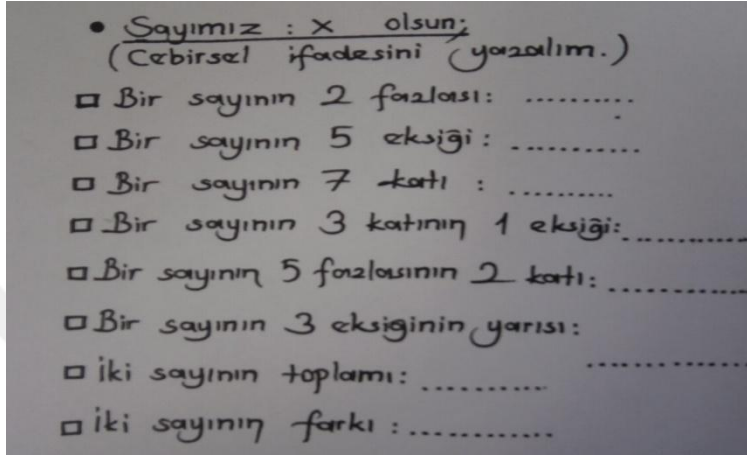 • Sayımız : x olsun;
(Cebirsel ifadesini yazalım.)
□ Bir sayının 2 fazlası: ..........
□ Bir sayının 5 eksiği: ...........
□ Bir sayının 7 katı : .........
□ Bir sayının 3 katının 1 eksiği: .............
□ Bir sayının 5 fazlasının 2 katı: .............
□ Bir sayının 3 eksiginin yarısı: ..............
□ İki sayının toplamı: ...........
□ İki sayının farkı : ............